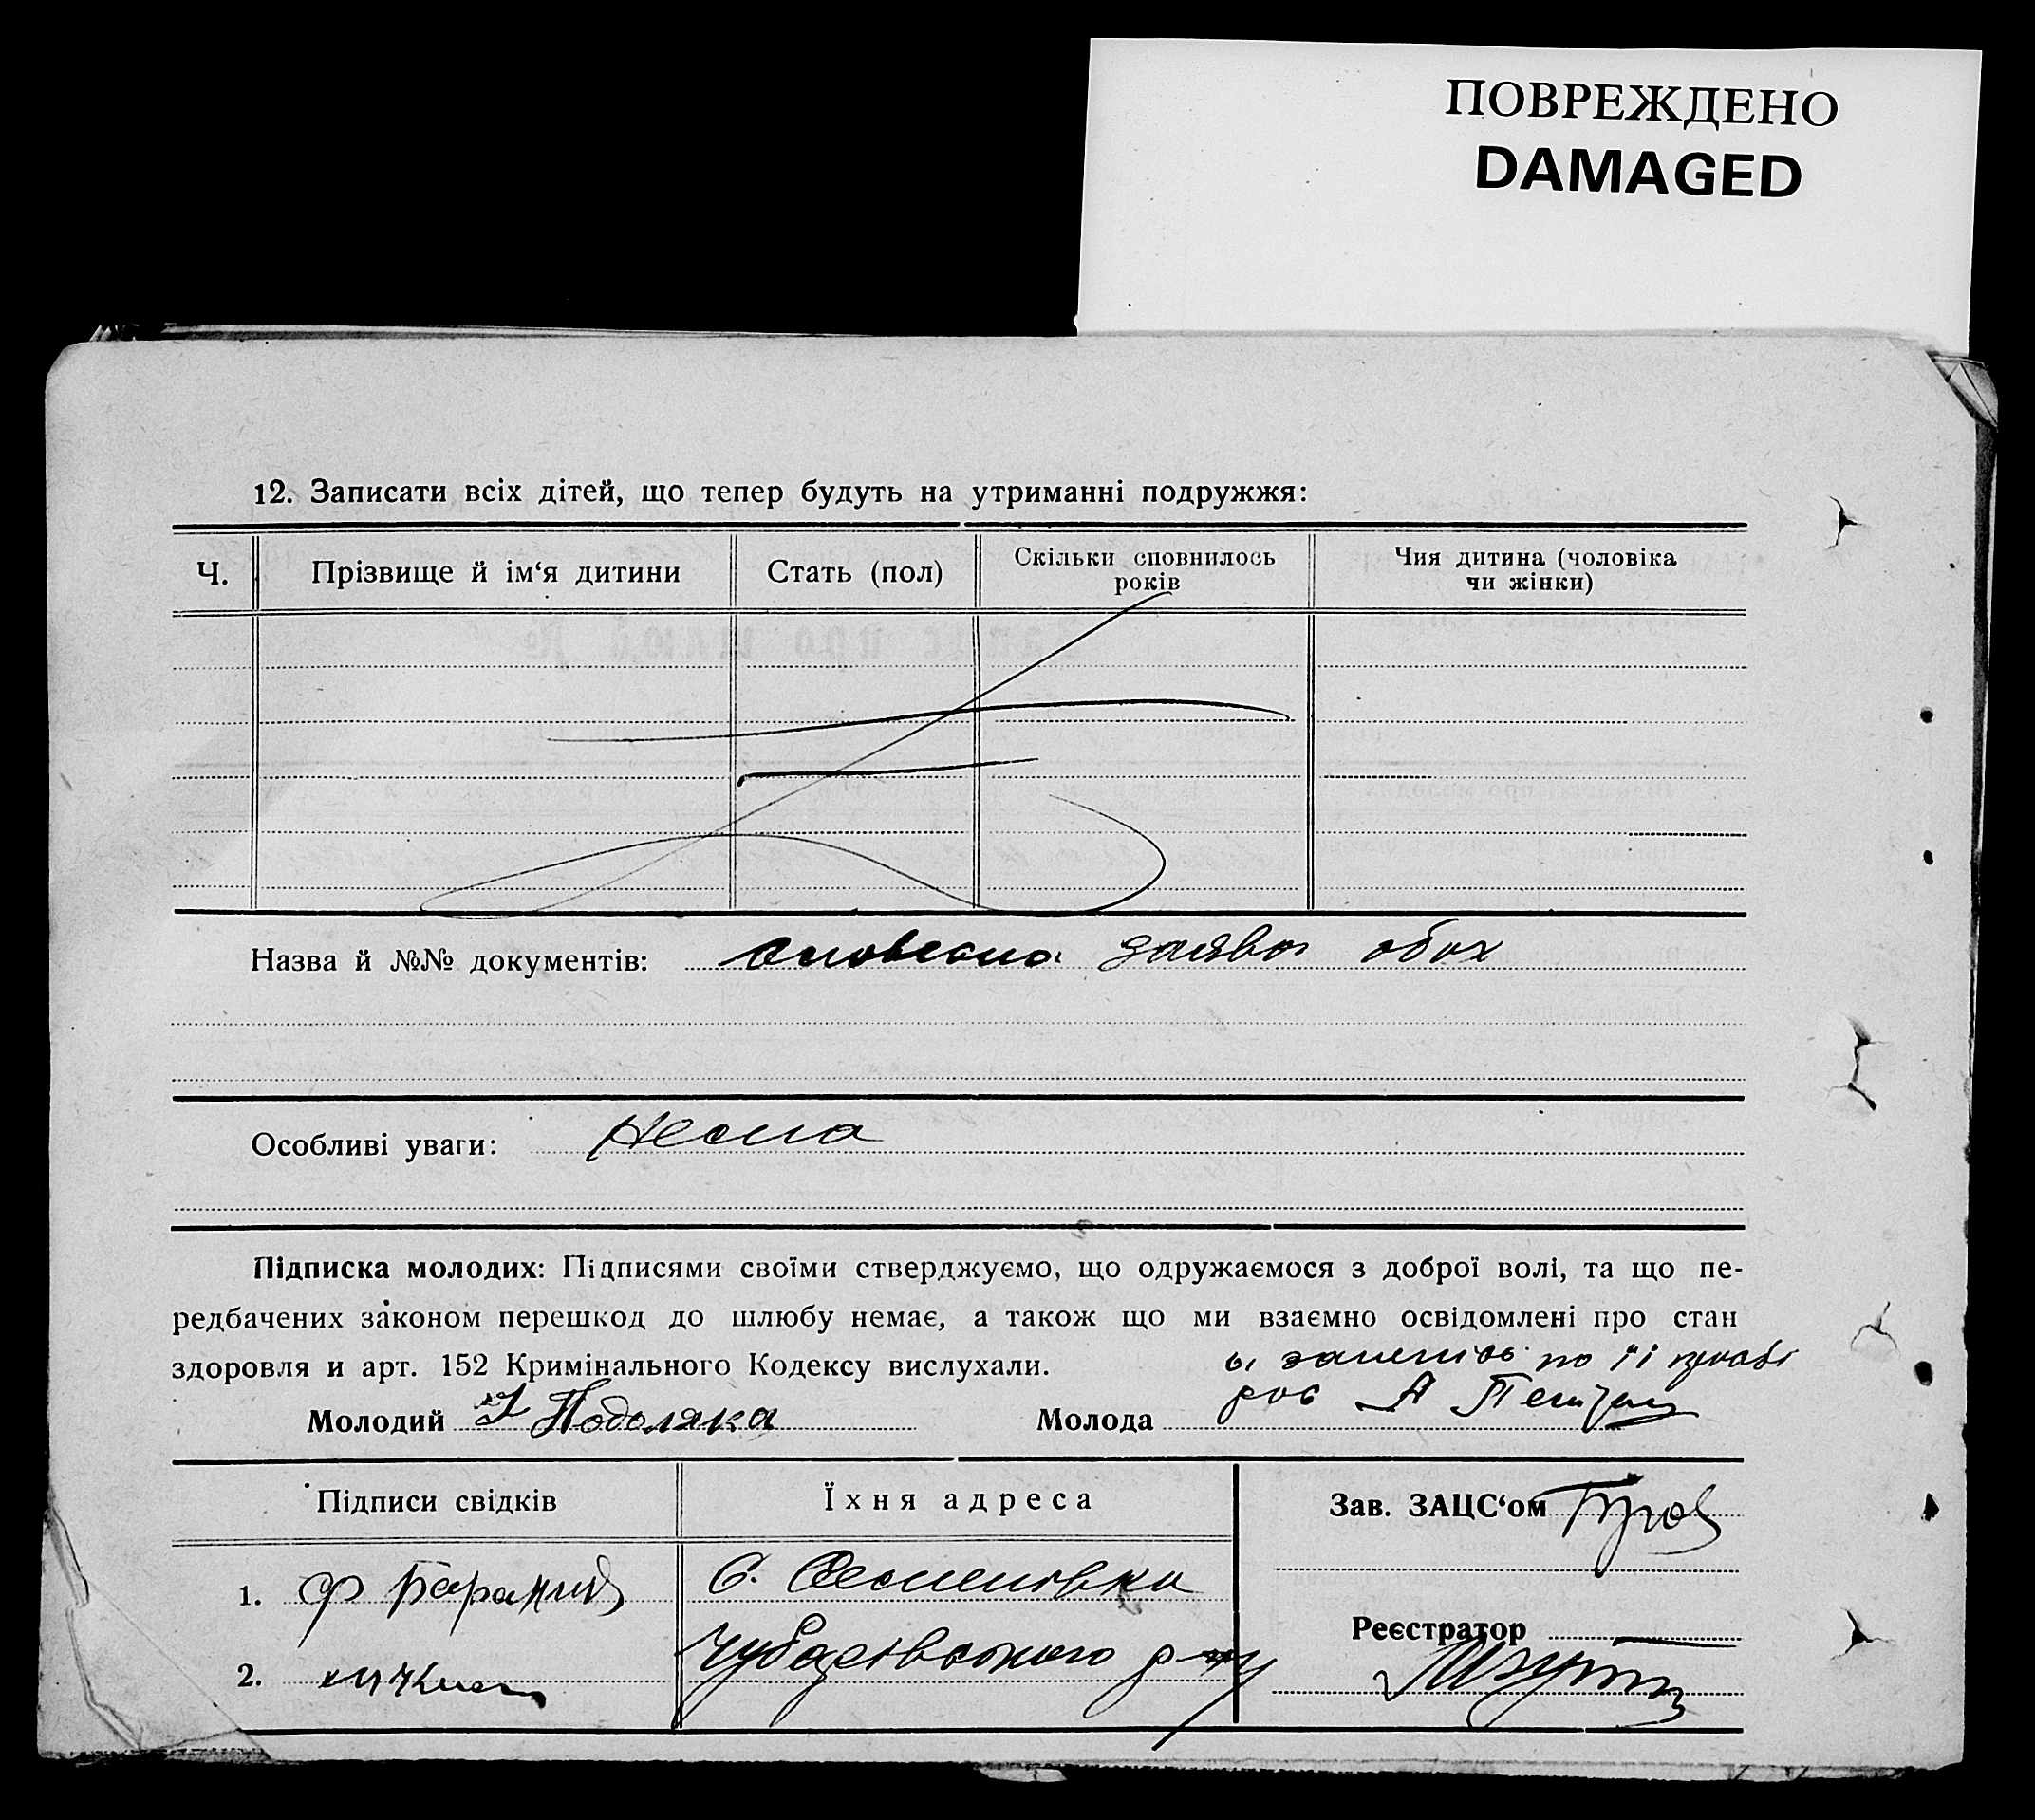 ПОВРЕЖДЕНО
DAMAGED
12. Записати всіх дітей, що тепер будуть на утриманні подружжя:
Ч. Прізвище й ім‘я дитини Стать (пол) Скільки сповнилось років Чия дитина (чоловіка чи жінки)
Назва й №№ документів: словесна заява обох
Особливі уваги: Нема
Підписка молодих: Підписями своїми стверджуємо, що одружаємося з доброї волі, та що пе-
редбачених законом перешкод до шлюбу немає, а також що ми взаємно освідомлені про стан
здоровля и арт. 152 Кримінального Кодексу вислухали.
по її
Молодий Подоляка Молода
Підписи свідків Їхня адреса Зав. ЗАЦС‘ом
1. Ф С. Семенівка
Реєстратор
2. р-ну